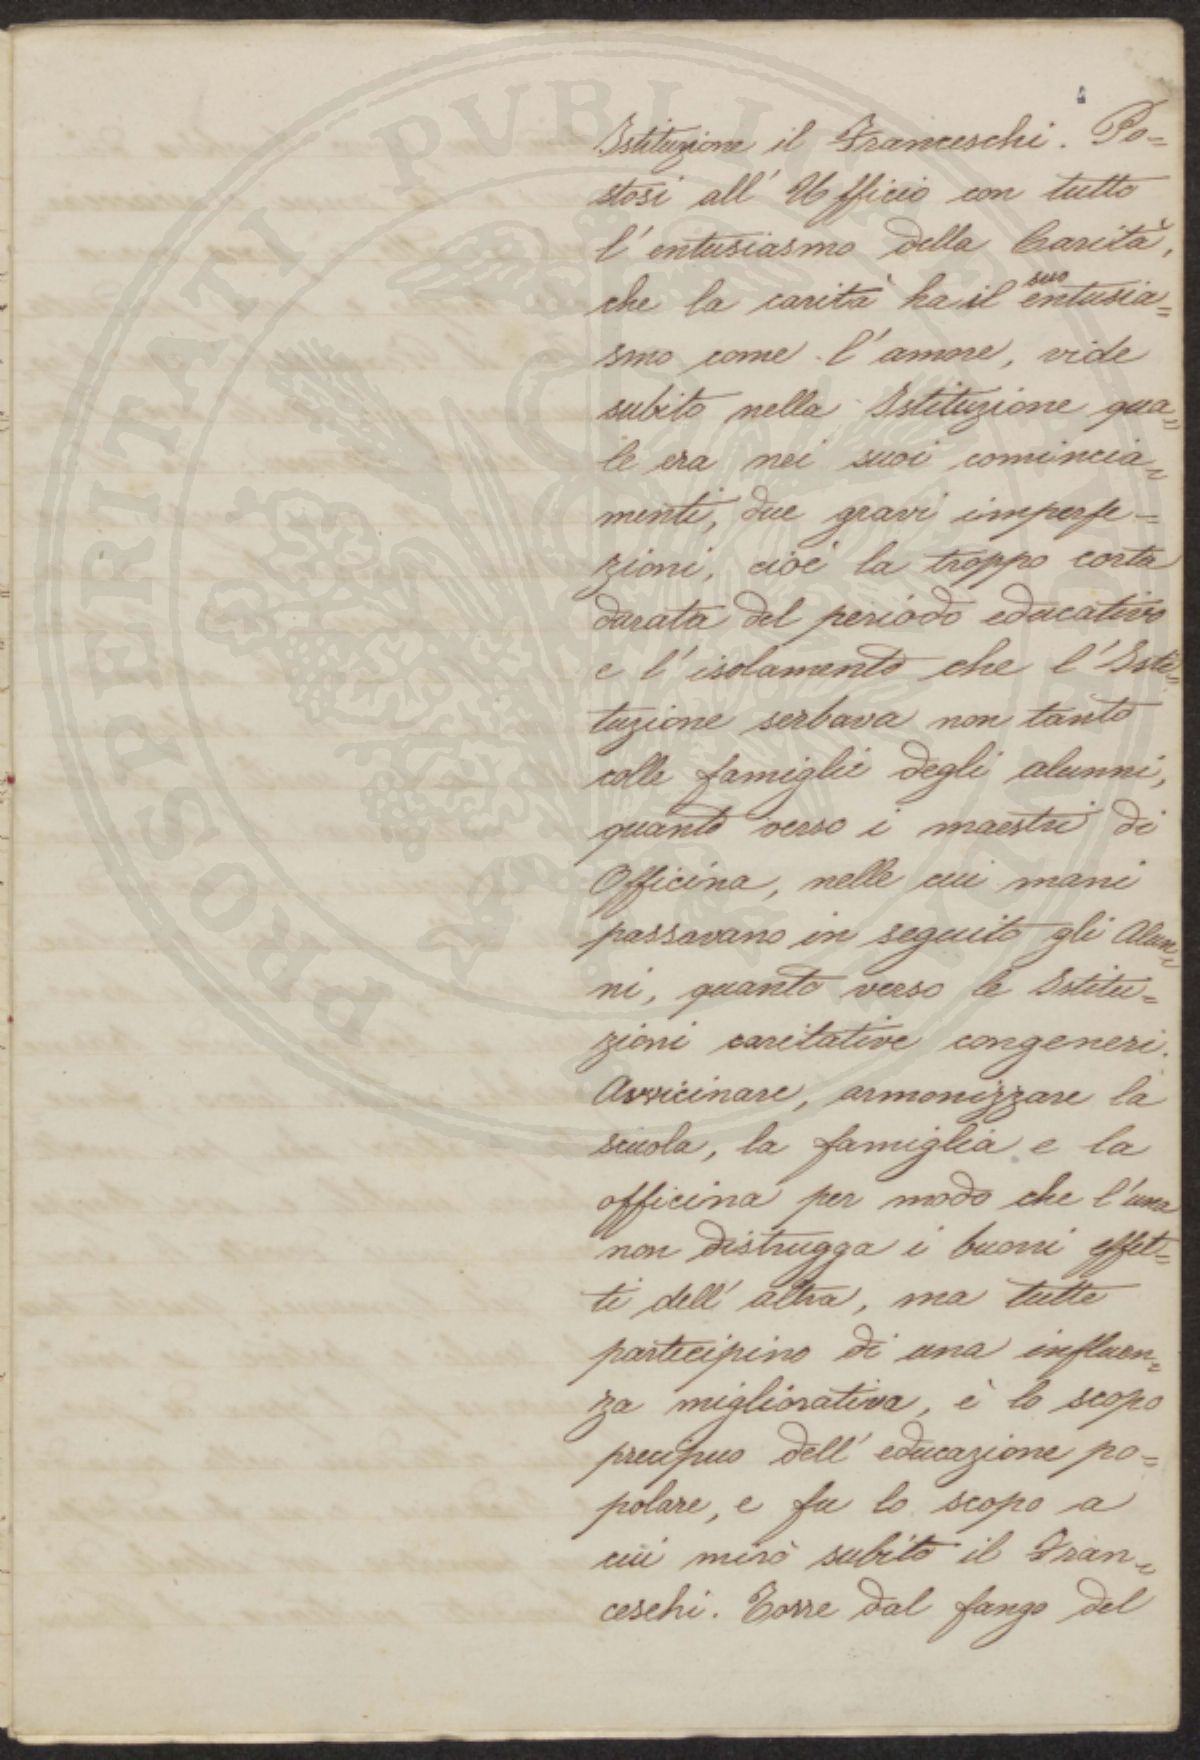 Istituzione il Franceschi. Po=
stosi all' Ufficio con tutto
l'entusiasmo della Carità,
che la carità ha il suo entusia=
smo come l'amore, vide
subito nella Istituzione qua=
le era nei suoi comincia=
menti, due gravi imperfe=
zioni, cioè la troppo corta
durata del periodo educativo
e l'isolamento che l'Isti=
tuzione serbava non tanto
colle famiglie degli alunni,
quanto verso i maestri di
Officina, nelle cui mani
passavano in seguito gli Alun=
ni, quanto verso le Istitu=
zioni caritative congeneri.
Avvicinare, armonizzare la
scuola, la famiglia e la
officina per modo che l'una
non distrugga i buoni effet=
ti dell' altra, ma tutte
partecipino di una influen=
za migliorativa, è lo scopo
precipuo dell' educazione po=
polare, e fu lo scopo a
cui mirò subito il Fran=
ceschi. Torre dal fango del
PROSPERITATI PUBLICAE